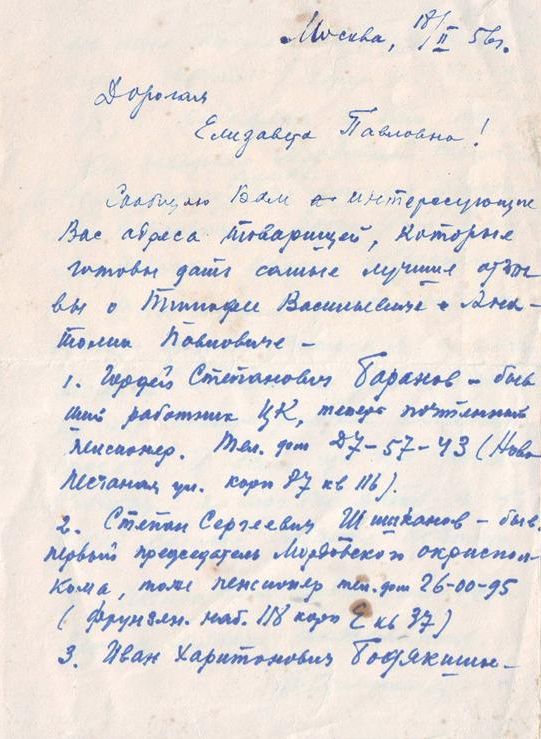 Москва, 18/II 56г.
Дорогая
Елизавета Павловна!
Сообщаю Вам интересующие
Вас адреса товарищей, которые
готовы дать самые лучшие отзы-
вы о Тимофее Васильевиче и Ана-
толии Павловиче –
1. Гордей Степанович Баранов – быв
ший работник ЦК, теперь почтенный
пенсионер. Тел. дом Д7-57-43 (Ново
Песчаная ул. корп 87 кв 116).
2. Степан Сергеевич Шишканов – быв.
первый председатель Мордовского окриспол-
кома, тоже пенсионер тел. дом 26-00-95
(Фрунзен. наб. 118 корп Е кв 37)
3. Иван Харитонович Бодякшин –